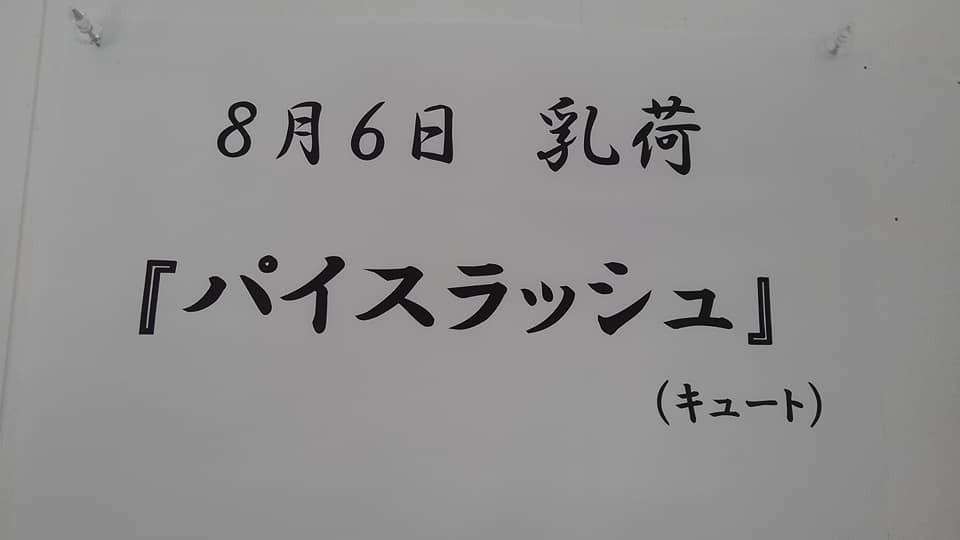 8月6日　乳荷
『パイスラッシュ』
(キュート)